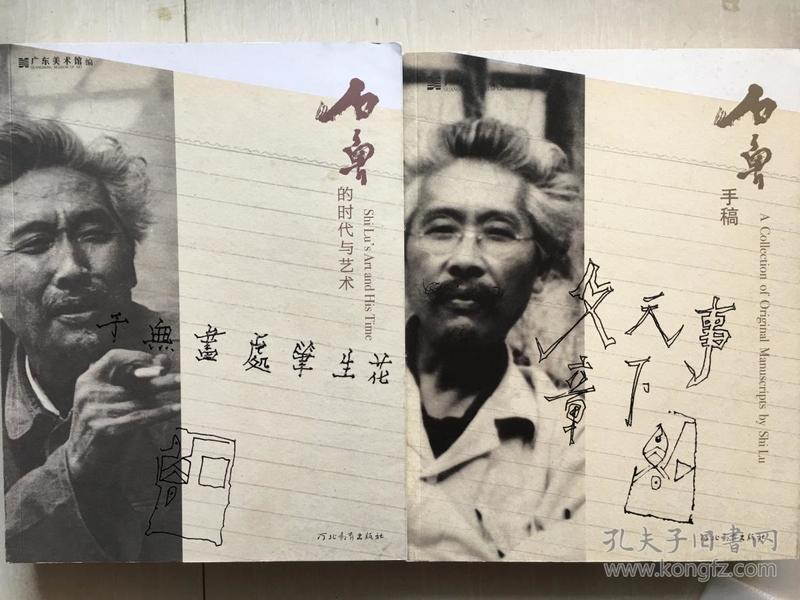 广东美术馆 编
GUANGDONG MUSEUM OF ART
石鲁
的时代与艺术
Shi Lu's Art and His Time
子無畫處筆生花
河北教育出版社
石鲁
手稿
A Collection of Original Manuscripts by Shi Lu
事天下
文章
河北教育出版社
孔夫子旧书网
www.kongfz.com